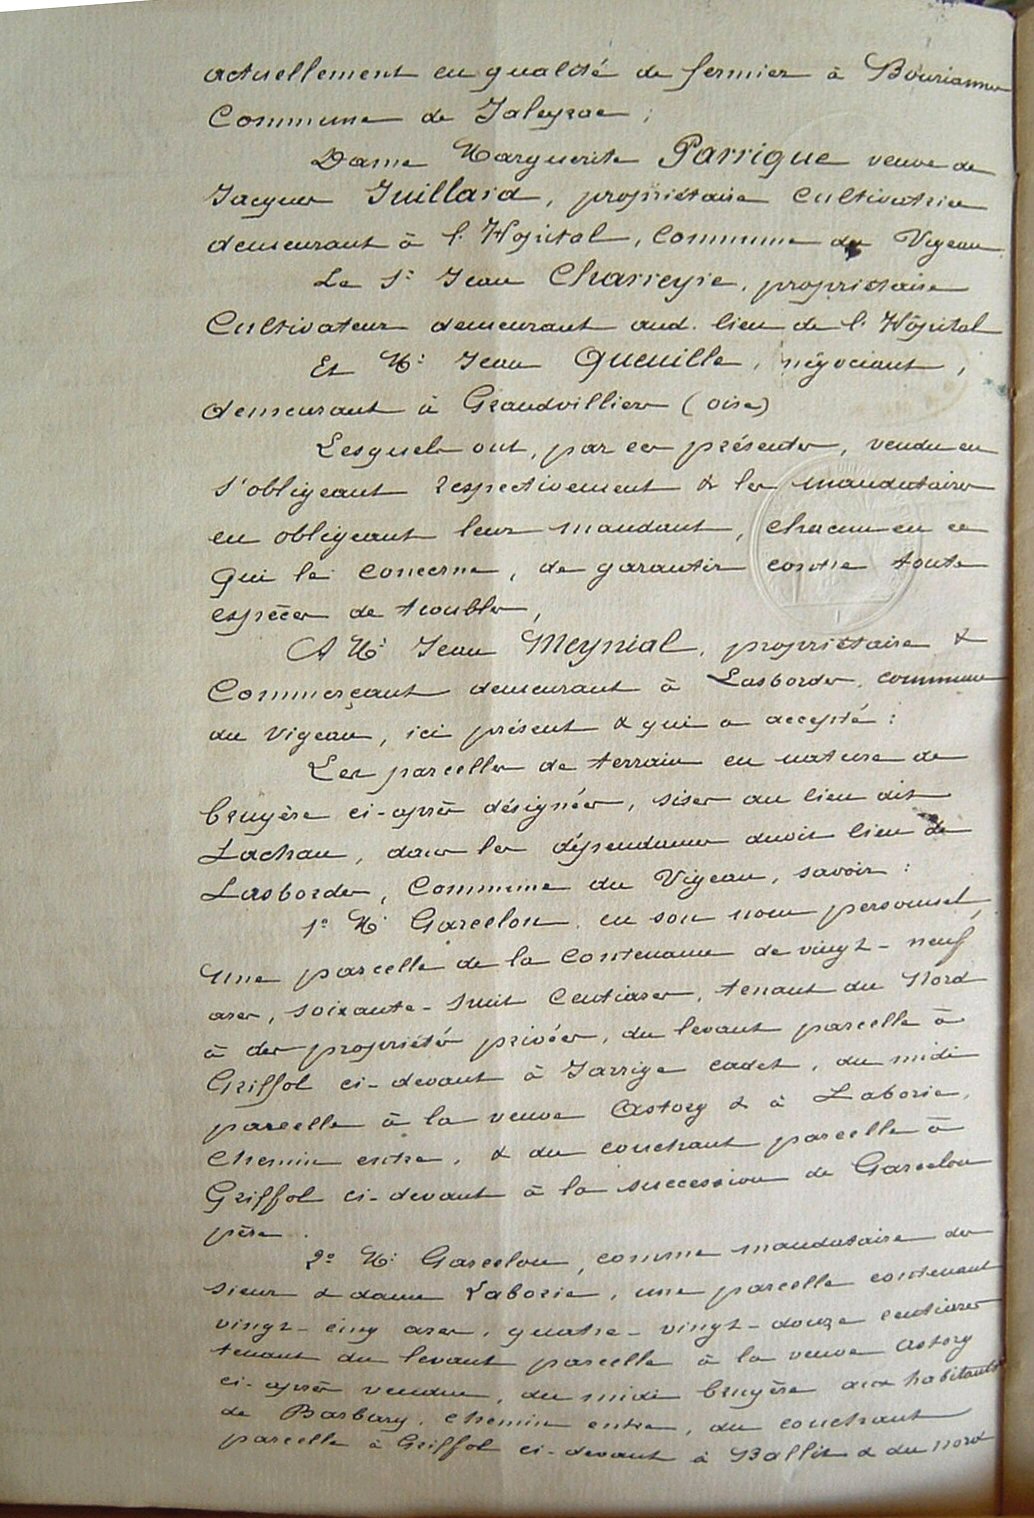 actuellement en qualité de fermier à Bouriannes
Commune de Jaleyrac ;
Dame Marguerite Parrique veuve de
Jacques Juillard, propriétaire Cultivatrice
demeurant à l'Hôpital, Commune du Vigean.
Le Sr Jean Charreyre, propriétaire
Cultivateur demeurant aud. lieu de l'Hôpital
Et Mr Jean Queuille, négociant,
demeurant à Grandvilliers (oise)
Lesquels ont, par ces présentes, vendu en
s'obligeant respectivement & les mandataires
en obligeant leurs mandants, chacun en ce
qui le concerne, de garantir contre toutes
espèces de troubles,
A Mr Jean Meynial, propriétaire &
Commerçant demeurant à Lasbordes, commune
du Vigean, ici présent & qui a accepté :
Les parcelles de terrain en nature de
bruyère ci-après désignées, sises au lieu dit
Lachau, dans les dépendances dudit lieu de
Lasbordes, Commune du Vigean, savoir :
1° Mr Garcelon, en son nom personnel,
une parcelle de la contenance de vingt-neuf
ares, soixante-huit centiares, tenant du Nord
à des propriétés privées, du levant parcelle à
Griffol ci-devant à Jarrige cadet, du midi
parcelle à la veuve Astorg & à Laborie,
chemin entre, & du couchant parcelle à
Griffol ci-devant à la succession de Garcelon
père.
2° Mr Garcelon, comme mandataire des
sieur & dame Laborie, une parcelle contenant
vingt-cinq ares, quatre-vingt-douze centiares
tenant du levant parcelle à la veuve Astorg
ci-après vendue, du midi bruyère aux habitants
de Barbary, chemin entre, du couchant
parcelle à Griffol ci-devant à Ballit & du nord